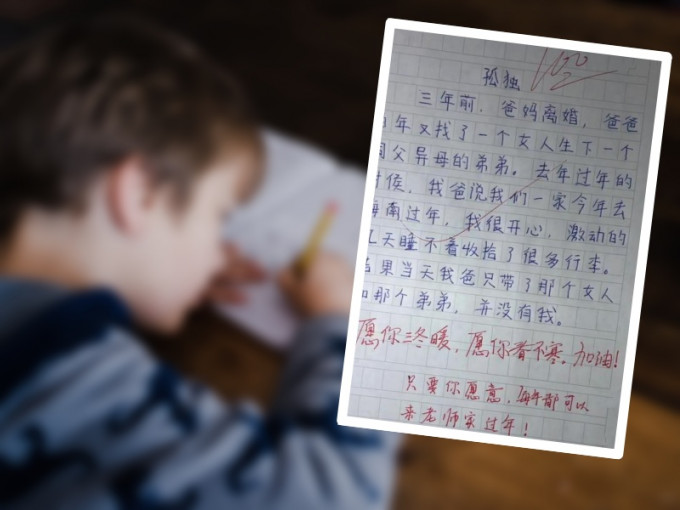 100
孤独
三年前，爸妈离婚，爸爸
年又找了一个女人生下一个
同父异母的弟弟。去年过年的
时候，我爸说我们一家今年去
海南过年，我很开心，激动的
几天睡不着收拾了很多行李。
结果当天我爸只带了那个女人
和那个弟弟，并没有我。
愿你三冬暖，愿你春不寒。加油！
只要你愿意，每年都可以
来老师家过年！